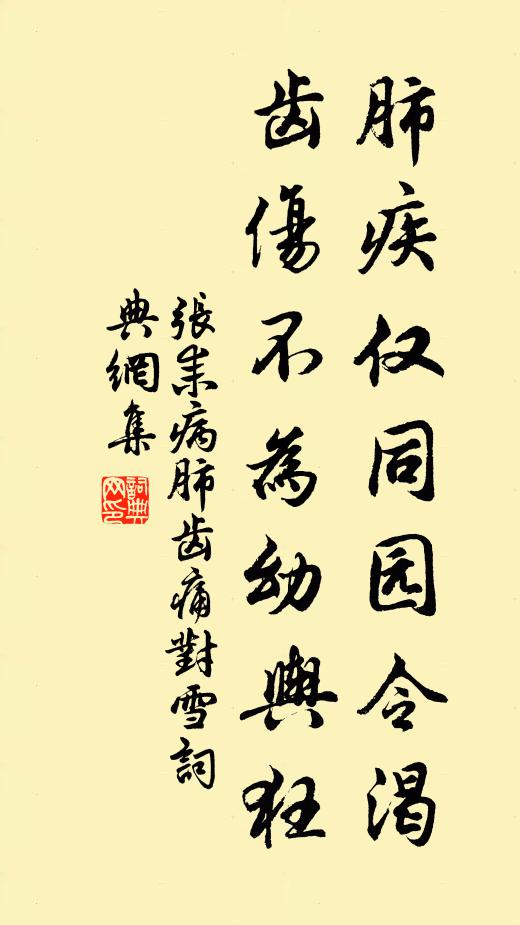 肺疾仅同园令渴
齿傷不為幼輿狂
張耒病肺齿痛對雪詞
典網集
詞典网印